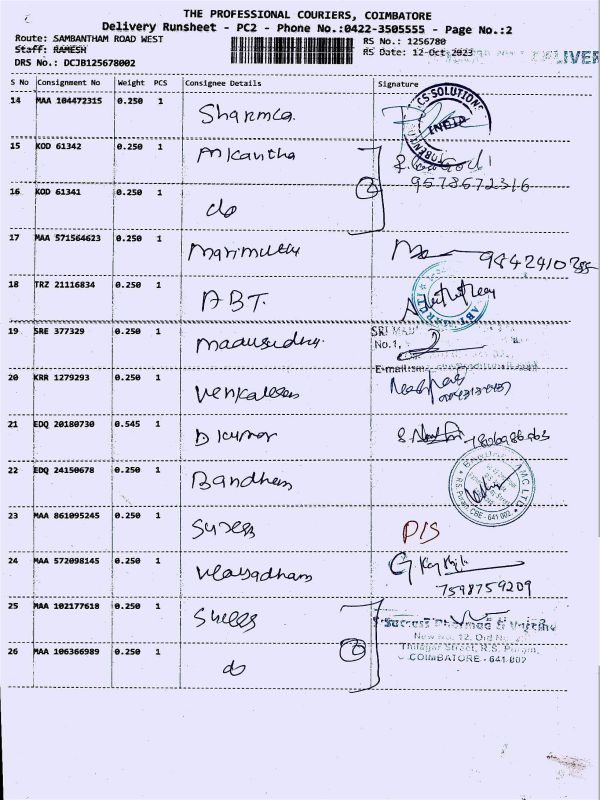 THE PROFESSIONAL COURIERS, COIMBATORE
Delivery Runsheet - PC2 - Phone No.:0422-3505555 - Page No.:2
Route: SAMBANTHAM ROAD WEST RS No.: 1256780
Staff: RAMESH RS Date: 12-Oct-2023 DELIVER
DRS No.: DCJB125678002
S No Consignment No Weight PCS Consignee Details Signature
14 MAA 104472315 0.250 1 Sharmca. CS SOLUTIONS INDIA
15 KOD 61342 0.250 1 Mkantha
9578672316
16 KOD 61341 0.250 1 do 2
17 MAA 571564623 0.250 1 Marimuttu 9842410255
18 TRZ 21116834 0.250 1 ABT.
19 SRE 377329 0.250 1 SRI
No.1,
E-mail:
20 KRR 1279293 0.250 1 Venkatesas
21 EDQ 20180730 0.545 1 D kumar
22 EDQ 24150678 0.250 1 Bandhan AMC LTD. R.S. Puram, CBE - 641 002
23 MAA 861095245 0.250 1 P/S
24 MAA 572098145 0.250 1
7598759209
25 MAA 102177618 0.250 1 Success
New No. 12, Old No.
26 MAA 106366989 0.250 1 do 2 Thilagar Street, R.S. Puram,
COIMBATORE - 641 002